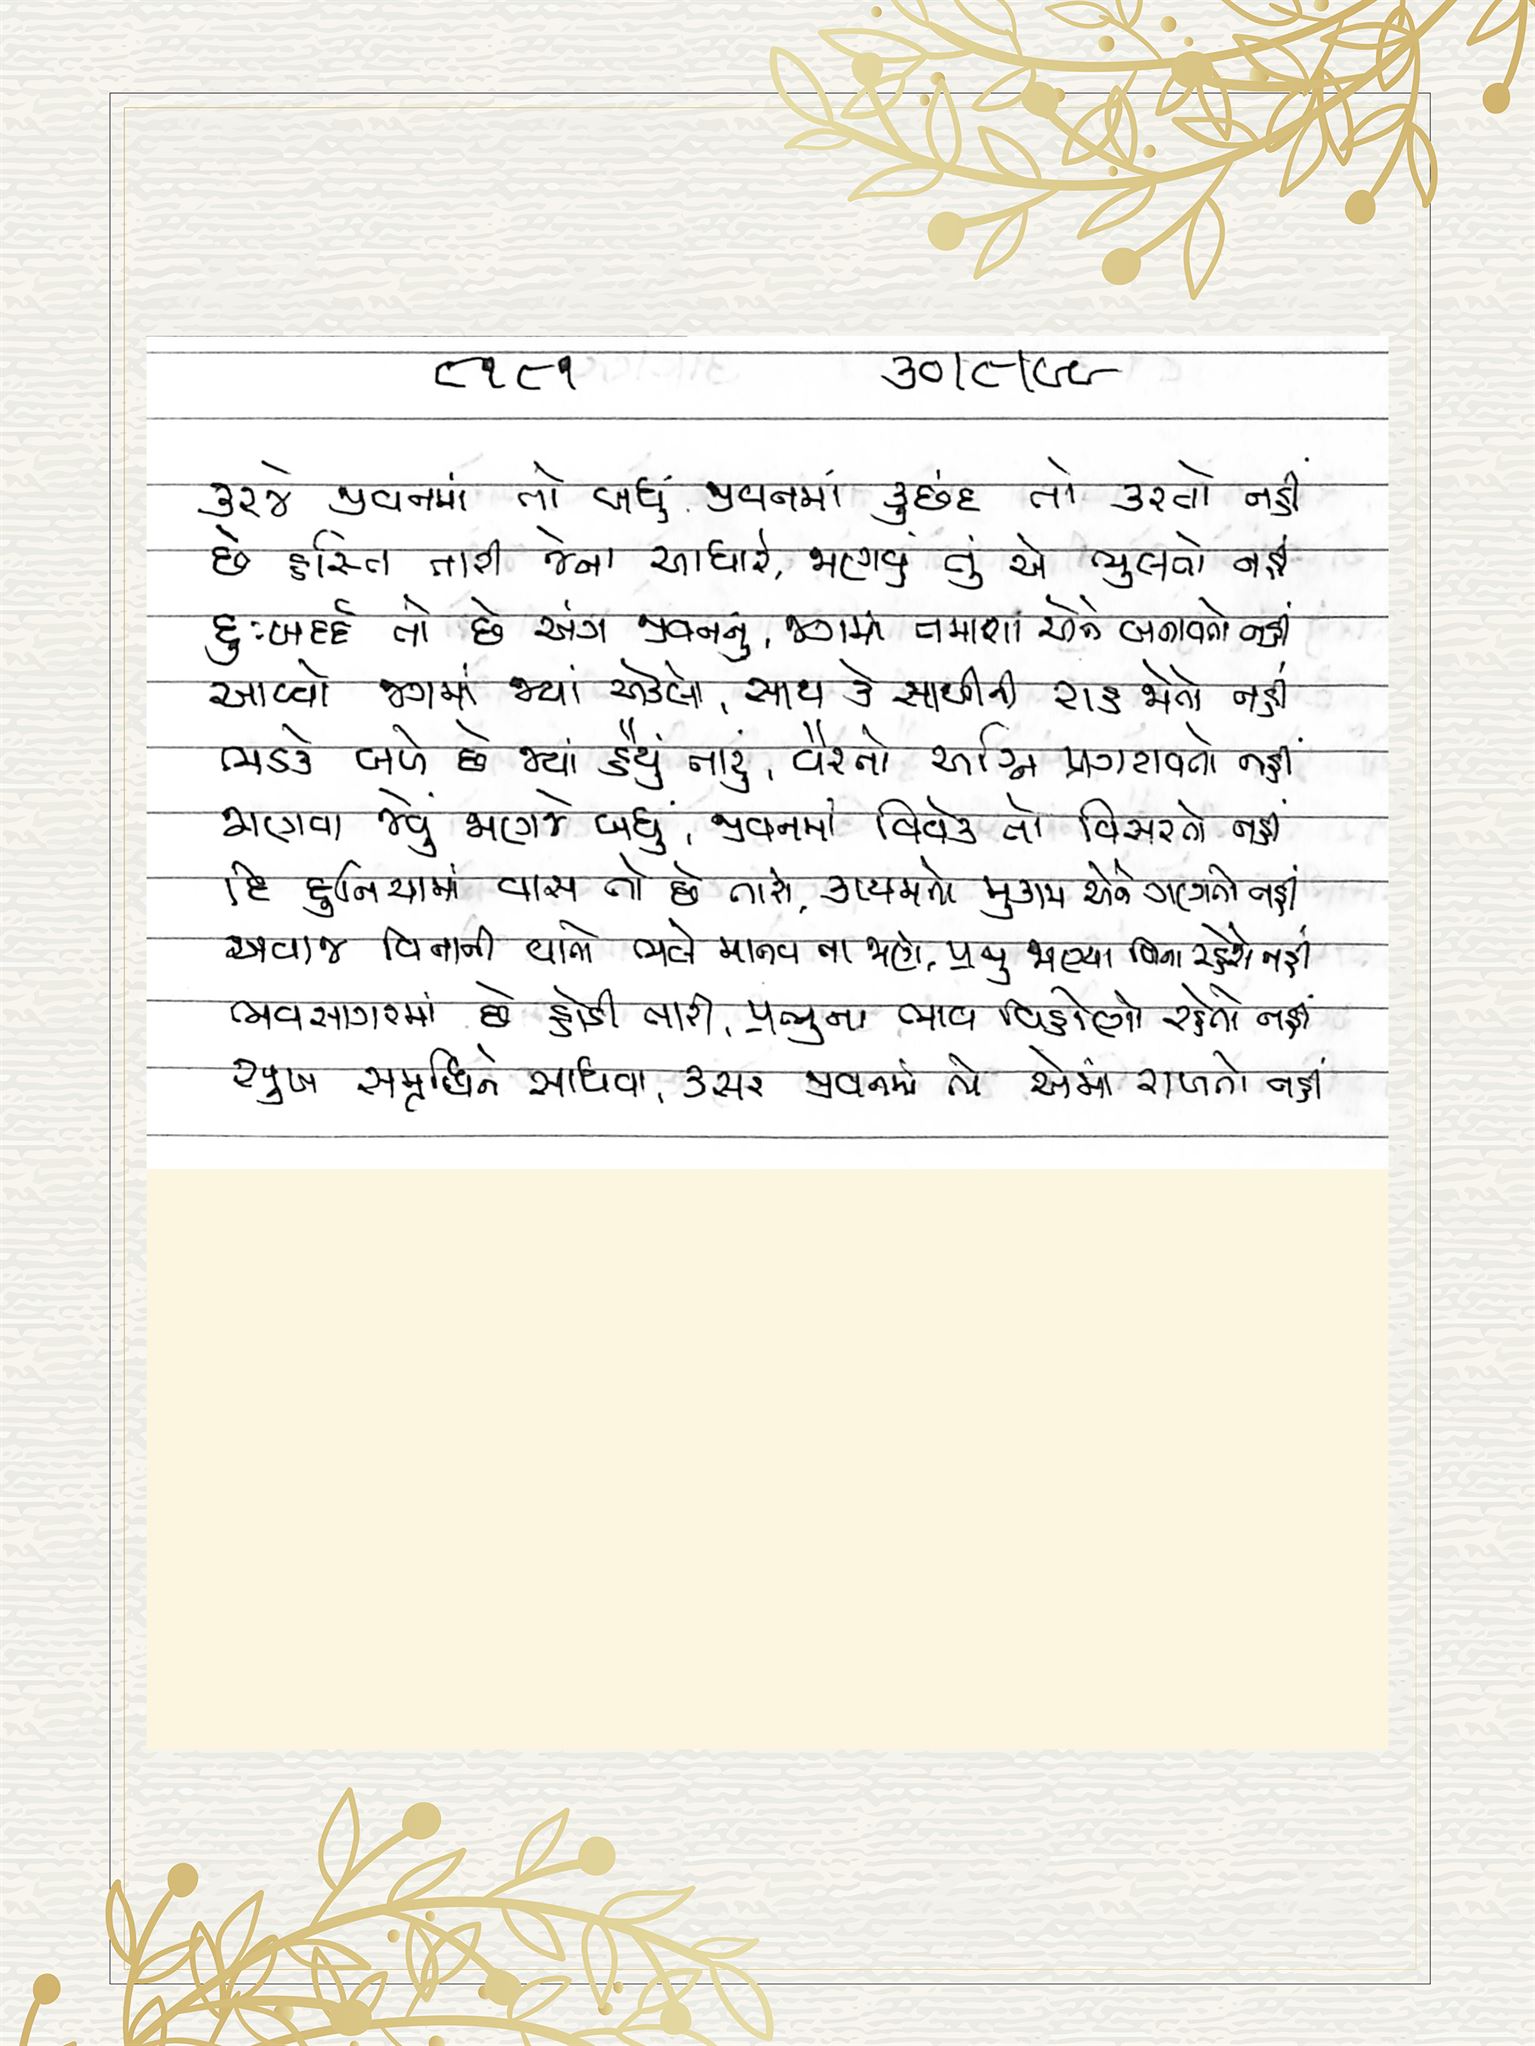 ૮૧૮૧ ૩૦/૮/૯૯
કરજે જીવનમાં તો બધું જીવનમાં કુછંદ તો કરતો નહીં
છે હસ્તિ તારી જેના આધારે, જાણવું તું એ ભુલતો નહીં
દુઃખદર્દ તો છે અંગ જીવનનું, જગમાં તમાશાં એને બનાવતો નહીં
આવ્યો જગમાં જ્યાં એકલો, સાથ કે સાથીની રાહ જોતો નહીં
ભડકે બળે છે જ્યાં હૈયું તારું, વૈરનો અગ્નિ પ્રગટાવતો નહીં
જાણવા જેવું જાણજે બધું, જીવનમાં વિવેક તો વિસરતો નહીં
દુનિયામાં વાસ તો છે તારો, કાયમનો મુકામ એને ગણતો નહીં
અવાજ વિનાની વાતો ભલે માનવ ના જાણે, પ્રભુ જાણ્યા વિના રહેશે નહીં
ભવસાગરમાં છે હોડી તારી, પ્રભુના ભાવ વિહોણો રહેતો નહીં
સુખ સમૃદ્ધિને સાધવા, કસર જીવનમાં તો એમાં રાખતો નહીં